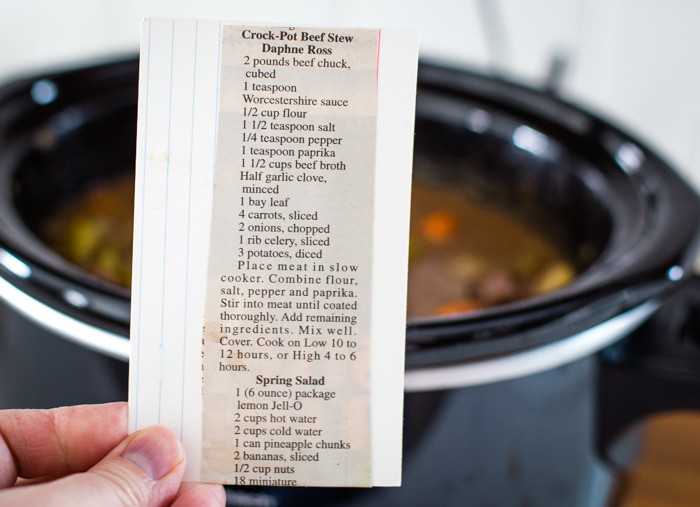 Crock-Pot Beef Stew
Daphne Ross
2 pounds beef chuck,
cubed
1 teaspoon
Worcestershire sauce
1/2 cup flour
1 1/2 teaspoon salt
1/4 teaspoon pepper
1 teaspoon paprika
1 1/2 cups beef broth
Half garlic clove,
minced
1 bay leaf
4 carrots, sliced
2 onions, chopped
1 rib celery, sliced
3 potatoes, diced
Place meat in slow
cooker. Combine flour,
salt, pepper and paprika.
Stir into meat until coated
thoroughly. Add remaining
ingredients. Mix well.
Cover. Cook on Low 10 to
12 hours, or High 4 to 6
hours.
Spring Salad
1 (6 ounce) package
lemon Jell-O
2 cups hot water
2 cups cold water
1 can pineapple chunks
2 bananas, sliced
1/2 cup nuts
18 miniature